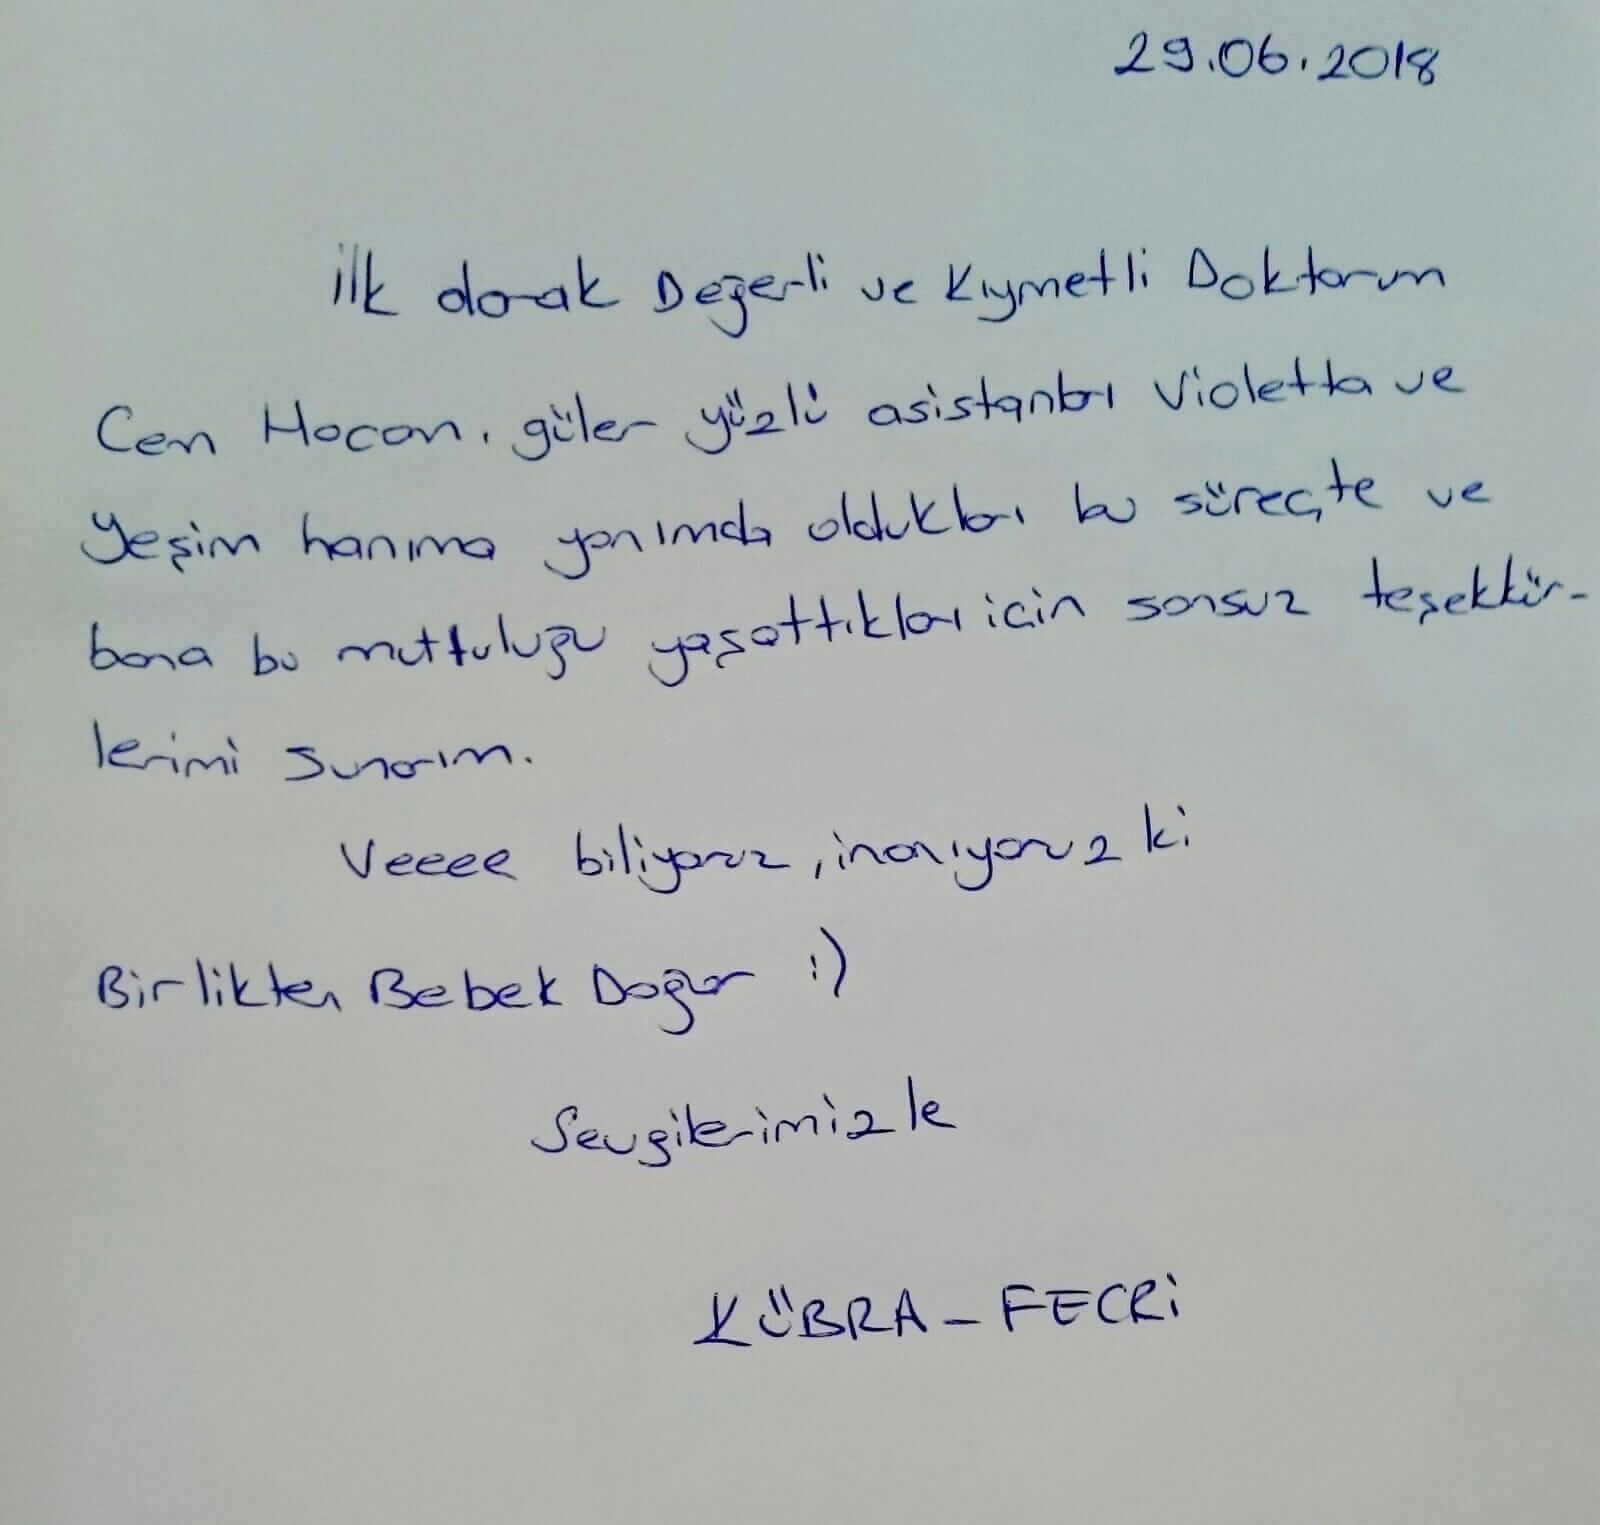 29.06.2018
ilk olarak Değerli ve Kıymetli Doktorum
Cem Hocam, güler yüzlü asistanları Violetta ve
Yeşim hanıma yanımda oldukları bu süreçte ve
bana bu mutluluğu yaşattıkları için sonsuz teşekkür-
lerimi sunarım.
Veeee biliyoruz, inanıyoruz ki
Birlikten Bebek Doğar :)
Sevgilerimizle
KÜBRA - FECRİ